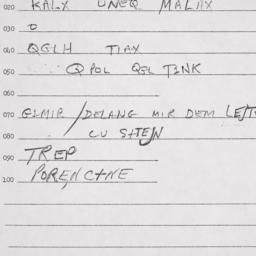 020 KALX UNEQ MALAX
030 O
040 QGLH TIAX
050 QPOL QGL TINK
060
070 GIMIR / DELANG MIR DEM
080 CU STEJN
090 TREP
100 PORENCTNE